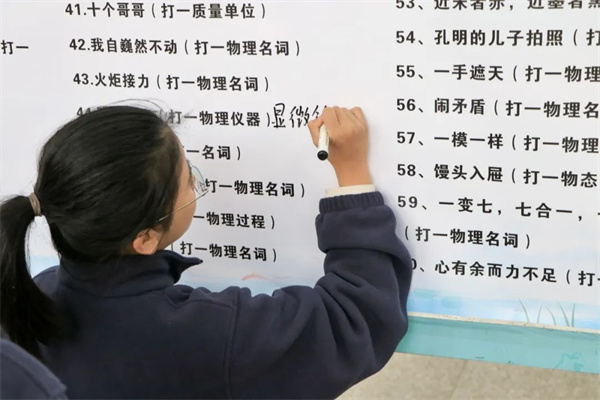 打一
41.十个哥哥（打一质量单位）
42.我自巍然不动（打一物理名词）
43.火炬接力（打一物理名词）
打一物理仪器）显微
一名词）
打一物理名词）
一物理过程）
打一物理名词）
53、近朱者赤，近墨者
54、孔明的儿子拍照（
55、一手遮天（打一物理
56、闹矛盾（打一物理名
57、一模一样（打一物理
58、馒头入屉（打一物态
59、一变七，七合一，
（打一物理名词）
、心有余而力不足（打